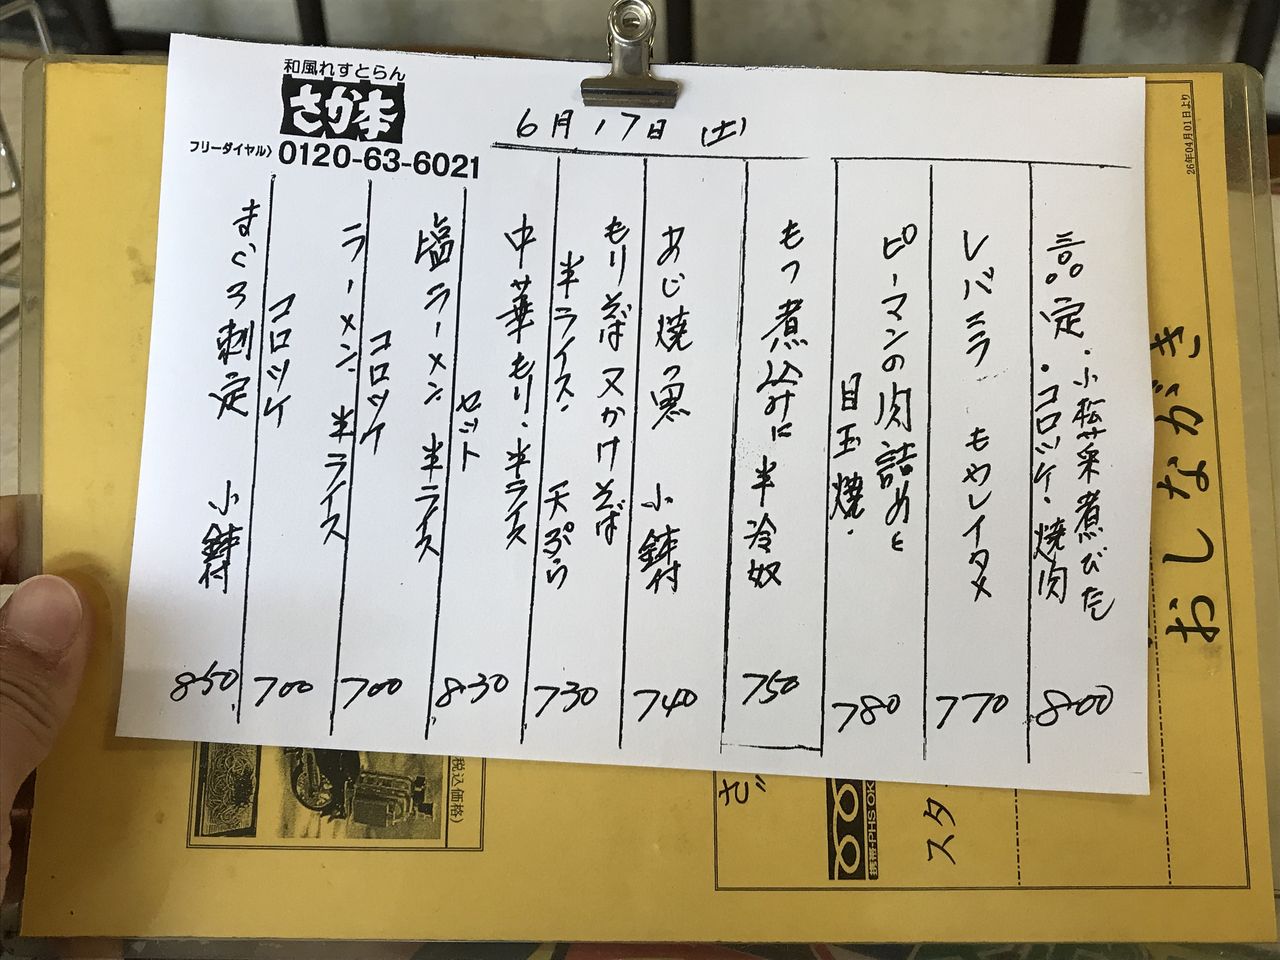 和風れすとらん
さか本
フリーダイヤル〉0120-63-6021
6月17日(土)
・小松菜煮びたし
定・コロッケ・焼肉
800
レバニラ もやしイタメ
770
ピーマンの肉詰めと
目玉焼・
780
もつ煮込みに半冷奴
750
あじ焼魚 小鉢付
740
もりそば又かけそば
半ライス・天ぷら
730
中華もり・半ライス
セット
830
塩ラーメン 半ライス
コロッケ
700
ラーメン、半ライス
コロッケ
700
まぐろ刺定 小鉢付
850
26年04月01日より
おしながき
税込価格)
携帯・PHS OK
スタ